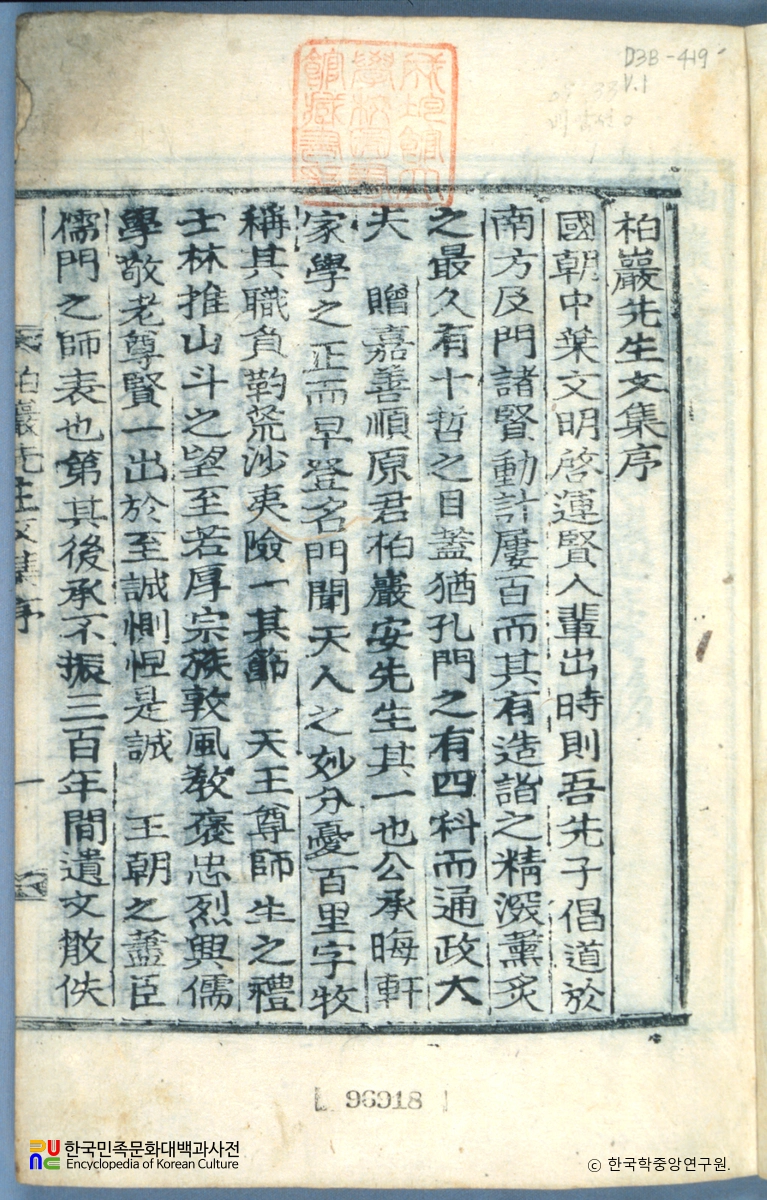 D3B-419
V.1
柏巖先生文集序
國朝中葉文明啓運賢人輩出時則吾先子倡道於
南方及門諸賢動計屢百而其有造詣之精深薰炙
之最久有十哲之目蓋猶孔門之有四科而通政大
夫 贈嘉善順原君柏巖安先生其一也公承晦軒
家學之正而早登名門聞天人之妙分憂百里字牧
稱其職負靮荒沙夷險一其節 天王尊師生之禮
士林推山斗之望至若厚宗族敦風敎褒忠烈興儒
學敬老尊賢一出於至誠惻怛是誠 王朝之藎臣
儒門之師表也第其後承不振三百年間遺文散佚
柏巖先生文集序
一
96918
한국민족문화대백과사전
Encyclopedia of Korean Culture
© 한국학중앙연구원.